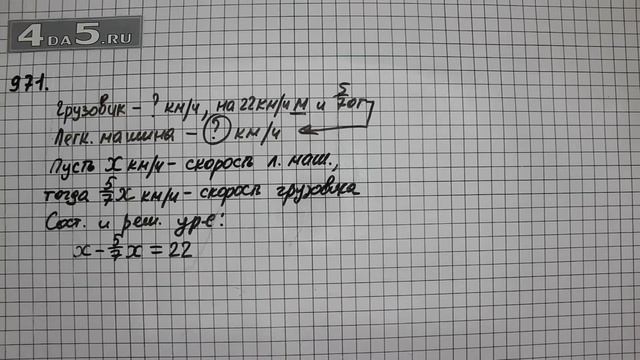 4DA5.RU
971.
Грузовик - ? км/ч, на 22 км/ч м и 5/7 от
Легк. машина - ? км/ч
Пусть x км/ч - скорость л. маш.,
тогда 5/7 x км/ч - скорость грузовика
Сост. и реш. ур-е:
x - 5/7 x = 22